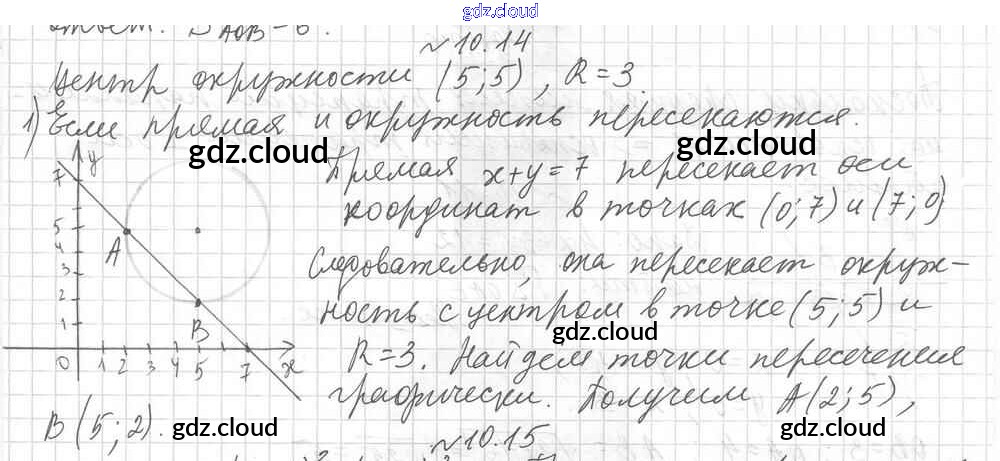 gdz.cloud
Ответ: S AOB = 6.
№10.14
Центр окружности (5;5), R=3.
1) Если прямая и окружность пересекаются.
gdz.cloud
gdz.cloud
Прямая x+y=7 пересекает оси
координат в точках (0;7) и (7;0)
Следовательно, она пересекает окруж-
ность с центром в точке (5;5) и
gdz.cloud
R=3. Найдем точки пересечения
графически. Получим A(2;5),
y
7
5
4
3
2
1
A
B
0 1 2 3 4 5 7 x
B(5;2).
gdz.cloud
gdz.cloud
№10.15